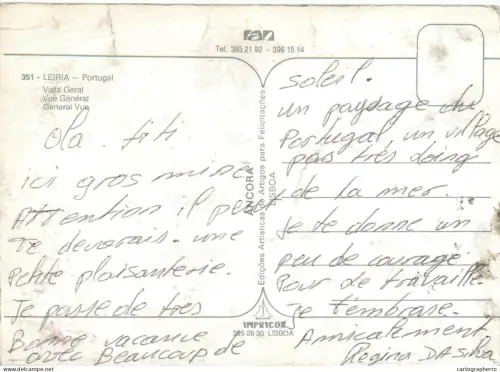 ran
Tel. 395 21 92 - 396 15 14
351 - LEIRIA - Portugal
Vista Geral
Vue Général
General Vue
Ola. fiti
ici gros mine
Attention il peut
Te devorais. une
petite plaisanterie.
Je passe de tres
Bonne vacance
avec Beaucoup de
ÂNCORA
Edições Artísticas de Artigos para Felicitações
LISBOA
IMPRICOR
395 28 30 LISBOA
Soleil.
un paysage du
Portugal un village
pas très doing
de la mer
je te donne un
peu de courage
Pour de travaille.
Je t'embrase.
Amicalement
Regina DA Silva
carterographer.net